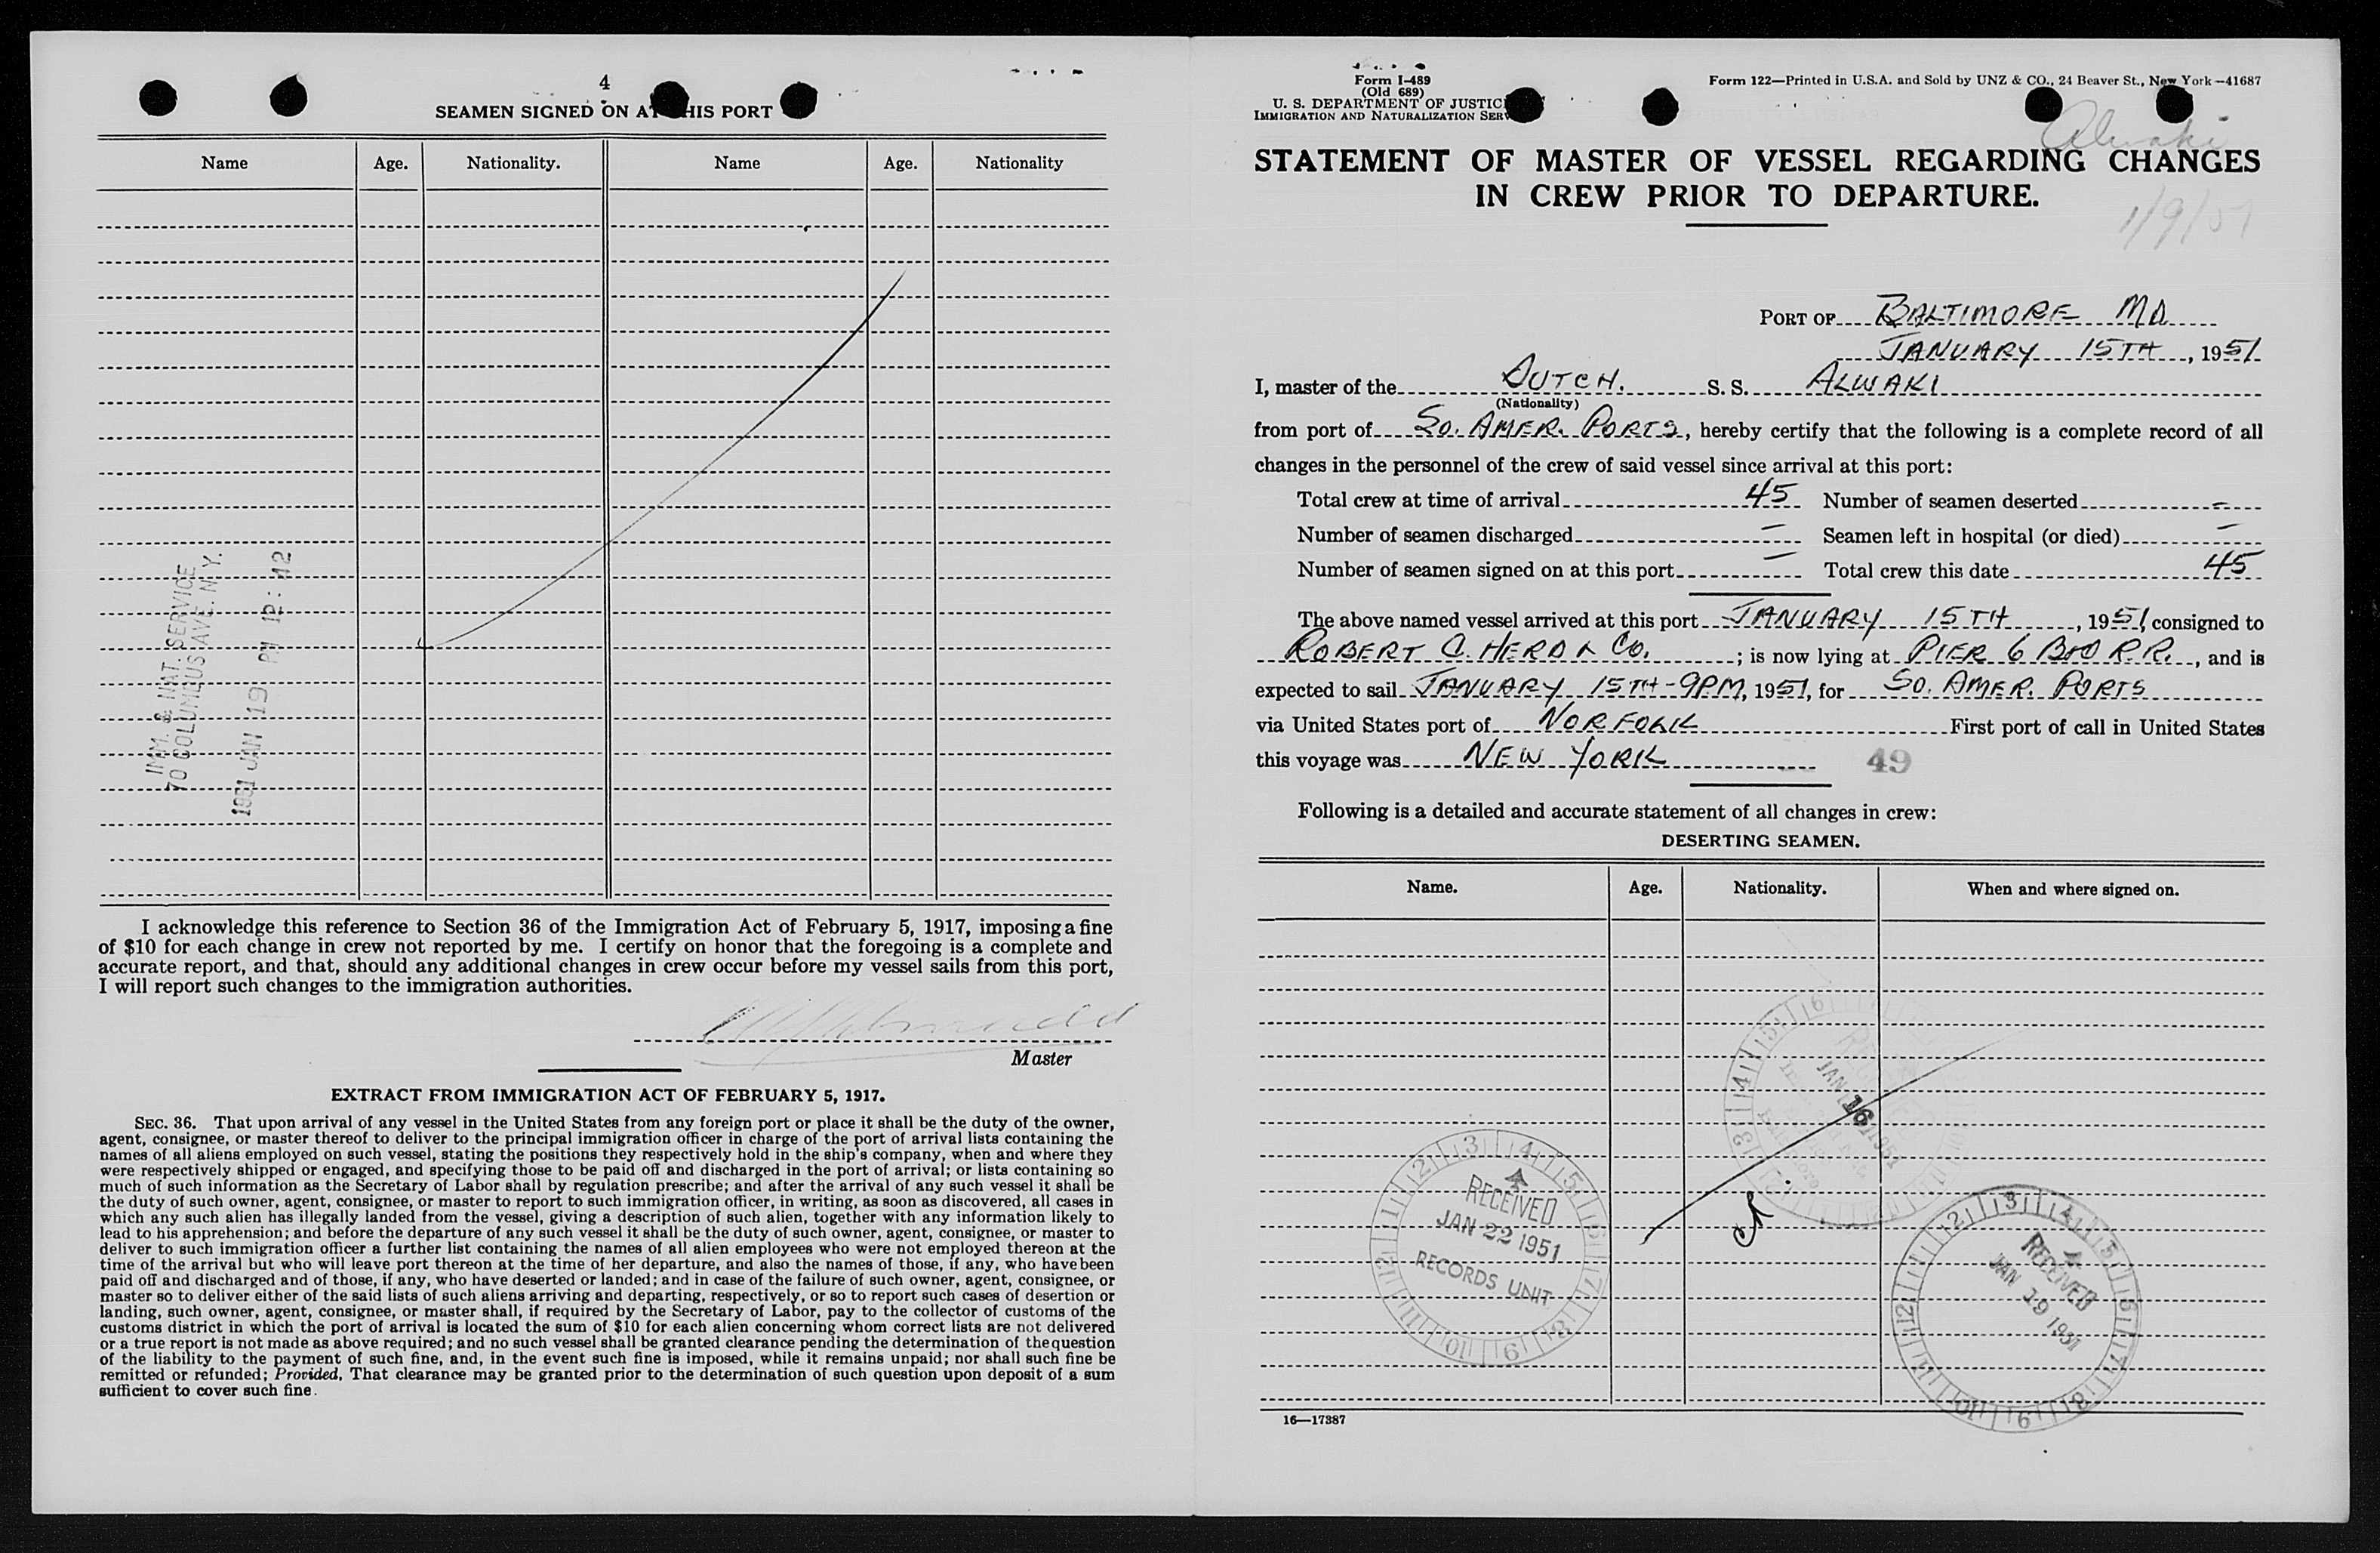 4
SEAMEN SIGNED ON AT THIS PORT
Name Age. Nationality. Name Age. Nationality
IMM. & NAT. SERVICE
70 COLUMBUS AVE. N.Y.
1951 JAN 19 PM 12:42
I acknowledge this reference to Section 36 of the Immigration Act of February 5, 1917, imposing a fine
of $10 for each change in crew not reported by me. I certify on honor that the foregoing is a complete and
accurate report, and that, should any additional changes in crew occur before my vessel sails from this port,
I will report such changes to the immigration authorities.
Master
EXTRACT FROM IMMIGRATION ACT OF FEBRUARY 5, 1917.
SEC. 36. That upon arrival of any vessel in the United States from any foreign port or place it shall be the duty of the owner,
agent, consignee, or master thereof to deliver to the principal immigration officer in charge of the port of arrival lists containing the
names of all aliens employed on such vessel, stating the positions they respectively hold in the ship's company, when and where they
were respectively shipped or engaged, and specifying those to be paid off and discharged in the port of arrival; or lists containing so
much of such information as the Secretary of Labor shall by regulation prescribe; and after the arrival of any such vessel it shall be
the duty of such owner, agent, consignee, or master to report to such immigration officer, in writing, as soon as discovered, all cases in
which any such alien has illegally landed from the vessel, giving a description of such alien, together with any information likely to
lead to his apprehension; and before the departure of any such vessel it shall be the duty of such owner, agent, consignee, or master to
deliver to such immigration officer a further list containing the names of all alien employees who were not employed thereon at the
time of the arrival but who will leave port thereon at the time of her departure, and also the names of those, if any, who have been
paid off and discharged and of those, if any, who have deserted or landed; and in case of the failure of such owner, agent, consignee, or
master so to deliver either of the said lists of such aliens arriving and departing, respectively, or so to report such cases of desertion or
landing, such owner, agent, consignee, or master shall, if required by the Secretary of Labor, pay to the collector of customs of the
customs district in which the port of arrival is located the sum of $10 for each alien concerning whom correct lists are not delivered
or a true report is not made as above required; and no such vessel shall be granted clearance pending the determination of the question
of the liability to the payment of such fine, and, in the event such fine is imposed, while it remains unpaid; nor shall such fine be
remitted or refunded; Provided, That clearance may be granted prior to the determination of such question upon deposit of a sum
sufficient to cover such fine.
Form I-489
(Old 689)
U. S. DEPARTMENT OF JUSTICE
IMMIGRATION AND NATURALIZATION SERV
Form 122—Printed in U.S.A. and Sold by UNZ & CO., 24 Beaver St., New York—41687
Alwaki
STATEMENT OF MASTER OF VESSEL REGARDING CHANGES
IN CREW PRIOR TO DEPARTURE.
1/9/51
PORT OF BALTIMORE MD
JANUARY 15TH, 1951
I, master of the DUTCH. S. S. ALWAKI
(Nationality)
from port of SO. AMER. PORTS, hereby certify that the following is a complete record of all
changes in the personnel of the crew of said vessel since arrival at this port:
Total crew at time of arrival 45 Number of seamen deserted -
Number of seamen discharged - Seamen left in hospital (or died) -
Number of seamen signed on at this port - Total crew this date 45
The above named vessel arrived at this port JANUARY 15TH, 1951, consigned to
ROBERT C. HERD & CO.; is now lying at PIER 6 B&O R.R., and is
expected to sail JANUARY 15TH-9PM, 1951, for SO. AMER. PORTS
via United States port of NORFOLK First port of call in United States
this voyage was NEW YORK 49
Following is a detailed and accurate statement of all changes in crew:
DESERTING SEAMEN.
Name. Age. Nationality. When and where signed on.
JAN 16 1951
RECEIVED
JAN 22 1951
RECORDS UNIT
RECEIVED
JAN 19 1951
16—17387